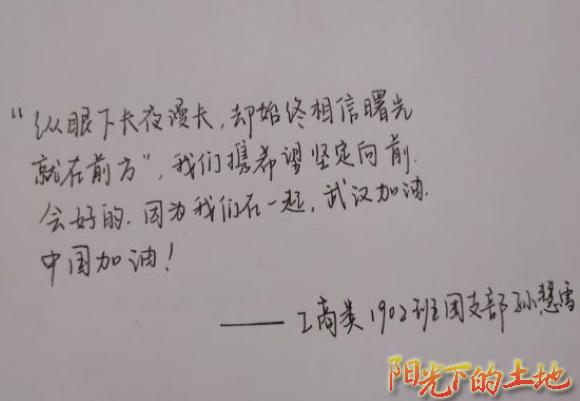 “纵眼下长夜漫长，却始终相信曙光
就在前方”，我们携希望坚定向前.
会好的.因为我们在一起，武汉加油.
中国加油！
——工商类1902班团支部孙慧雪
阳光下的土地